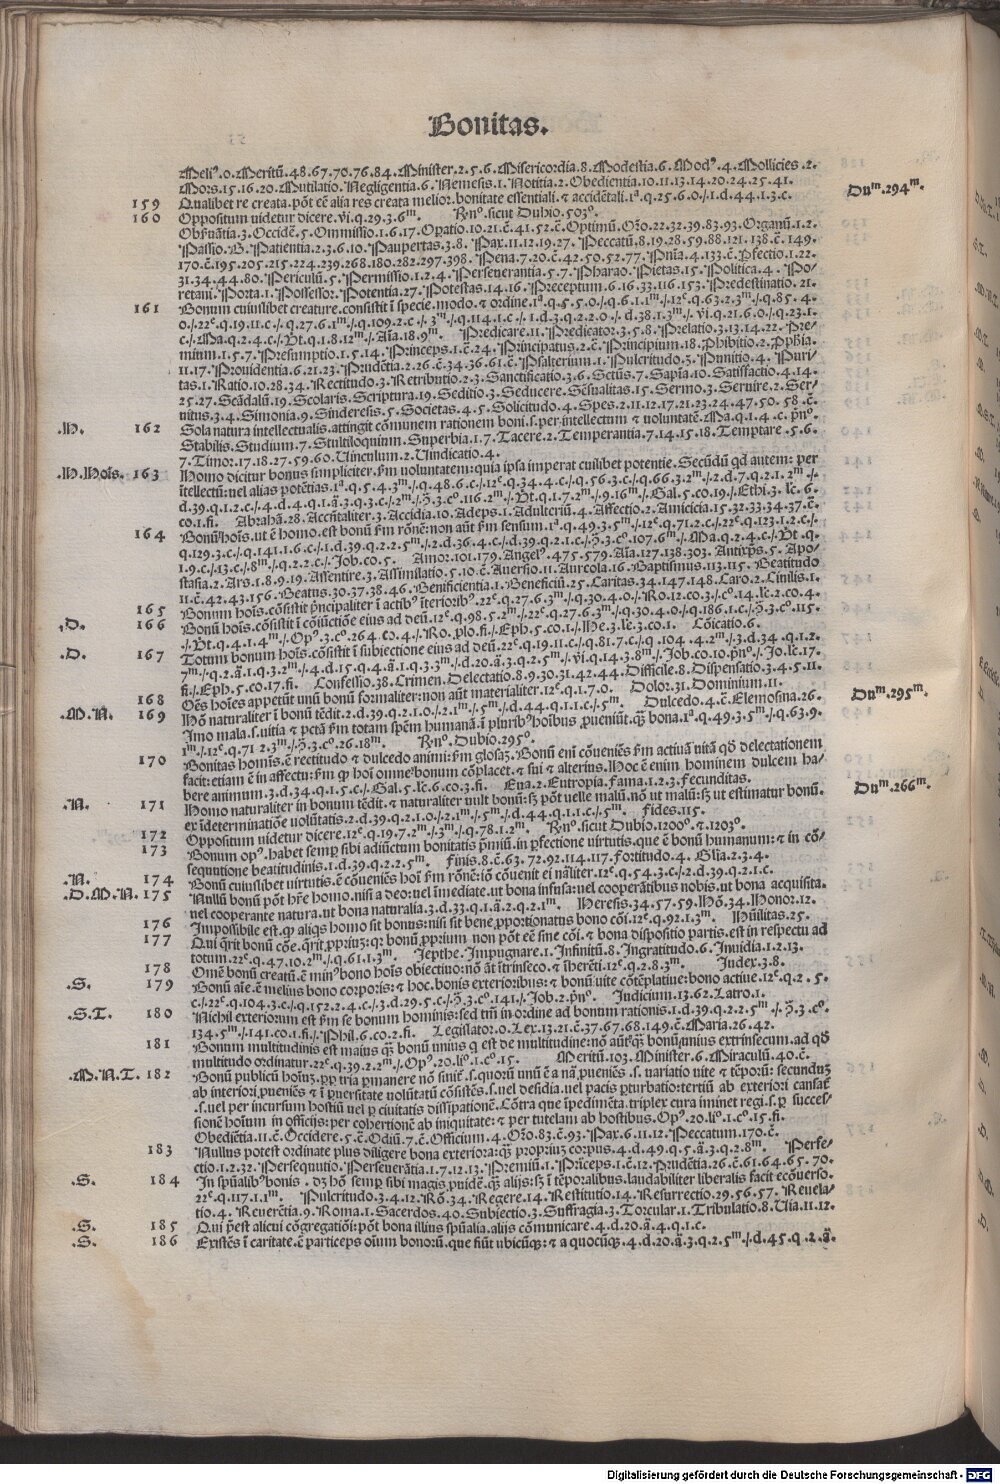 Bonitas.
Meliꝰ.0.Meritū.48.67.70.76.84.Minister.2.5.6.Misericordia.8.Modestia.6.Modꝰ.4.Mollicies.2.
Mors.15.16.20.Mutilatio.Negligentia.6.Nemesis.1.Notitia.2.Obedientia.10.11.13.14.20.24.25.41.
Duᵐ.294ᵐ.
159 Qualibet re creata.pōt eē alia res creata melior.bonitate essentiali.⁊ accidētali.1ª.q.25.6.0./.1.d.44.1.3.c.
160 Oppositum uidetur dicere.vi.q.29.3.6ᵐ. Rñº.sicut Dubio.503º.
Obſruātia.3.Occidē.5.Ommissio.1.6.17.Opatio.10.21.c̄.41.52.c̄.Optimū.Oro.22.32.39.83.93.Organū.1.2.
Passio.Patientia.2.3.6.10.Paupertas.3.8.Pax.11.12.19.27.Peccatū.8.19.28.59.88.121.138.c̄.149.
170.c̄.195.205.215.224.239.268.180.282.297.398.Pena.7.20.c̄.42.50.52.77.Pnīa.4.133.c̄.Pfectio.1.22.
31.34.44.80.Periculū.5.Permissio.1.2.4.Perseuerantia.5.7.Pharao.Pietas.15.Politica.4.Po/
retani.Porta.1.Possessor.Potentia.27.Potestas.14.16.Preceptum.6.16.33.116.153.Predestinatio.21.
161 Bonum cuiuslibet creature.consistit ī specie.modo.⁊ ordine.1ª.q.5.5.0./.q.6.1.1ᵐ./.12ᵉ.q.63.2.3ᵐ./.q.85.4.
0./.22ᵉ.q.19.11.c./.q.27.6.1ᵐ./.q.109.2.c./.3ᵐ./.q.114.1.c./.1.d.3.q.2.2.0./.d.38.1.3ᵐ./.vi.q.21.6.0./.q.23.1.
c./.Ma.q.2.4.c./.Vt.q.1.8.12ᵐ./.Aīa.18.9ᵐ. Predicare.11.Predicator.3.5.8.Prelatio.3.13.14.22.Pre/
mium.1.5.7.Presumptio.1.5.14.Princeps.1.c̄.24.Principatus.2.c̄.Principium.18.Phibitio.2.Pphīa.
11.17.Prouidentia.6.21.23.Prudētia.2.26.c̄.34.36.61.c̄.Psalterium.1.Pulcritudo.3.Punitio.4.Puri/
tas.1.Ratio.10.28.34.Rectitudo.3.Retributio.2.3.Sanctificatio.3.6.Sctūs.7.Sapīa.10.Satisfactio.4.14.
25.27.Scādalū.19.Scolaris.Scriptura.19.Seditio.3.Seducere.Sēsualitas.15.Sermo.3.Seruire.2.Ser/
uitus.3.4.Simonia.9.Sinderesis.5.Societas.4.5.Solicitudo.4.Spes.2.11.12.17.21.23.24.47.50.58.c̄.
.N. 162 Sola natura intellectualis.attingit cōmunem rationem boni.s.per intellectum ⁊ uoluntatē.Ma.q.1.4.c.pnº.
Stabilis.Studium.7.Stultiloquium.Superbia.1.7.Tacere.2.Temperantia.7.14.15.18.Temptare.5.6.
7.Timor.17.18.27.59.60.Uinculum.2.Uindicatio.4.
.N.Hoīs. 163 Homo dicitur bonus simpliciter.ſm uoluntatem:quia ipsa imperat cuilibet potentie.Secūdū qd autem: per
ītellectū:uel alias potētias.1ª.q.5.4.3ᵐ./.q.48.6.c./.12ᵉ.q.34.4.c./.q.56.3.c./.q.66.3.2ᵐ./.2.d.7.q.2.1.2ᵐ./.
d.39.q.1.2.c./.4.d.4.q.1.ā.3.q.3.c./.2ᵐ./.3.cº.116.2ᵐ./.Vt.q.1.7.2ᵐ./.9.16ᵐ./.Gal.5.co.19./.Ethi.3.lc.6.
co.1.fi. Abrahā.28.Accītaliter.3.Accidia.10.Adeps.1.Adulteriū.4.Affectio.2.Amicicia.15.32.33.34.37.c̄.
164 Bonū hoīs.ut ē homo.est bonū ſm rōnē:non aūt ſm sensum.1ª.q.49.3.5ᵐ./.12ᵉ.q.71.2.c./.22ᵉ.q.123.1.2.c./.
q.129.3.c./.q.141.1.6.c./.1.d.39.q.2.2.5ᵐ./.2.d.36.4.c./.d.39.q.2.1.c./.3.cº.107.6ᵐ./.Ma.q.2.4.c./.Vt.q.
1.9.c./.13.c./.8ᵐ./.q.2.2.c./.Job.co.5. Amor.101.179.Angelꝰ.475.579.Aīa.127.138.303.Antixps.5.Apo/
stasia.2.Ars.1.8.9.19.Assentire.3.Assimilatio.5.10.c̄.Auersio.11.Aureola.16.Baptismus.113.115.Beatitudo
11.c̄.42.43.156.Beatus.30.37.38.46.Benificientia.1.Beneficiū.25.Caritas.34.147.148.Caro.2.Ciuilis.1.
165 Bonum hoīs.cōsistit pncipaliter ī actibꝰ īterioribꝰ.22ᵉ.q.27.6.3ᵐ./.q.30.4.0./.Ro.12.co.3./.cº.14.lc.2.co.4.
.D. 166 Bonū hoīs.cōsistit ī coiūctiōe eius ad deū.12ᵉ.q.98.5.2ᵐ./.22ᵉ.q.27.6.3ᵐ./.q.30.4.0./.q.186.1.c./.3.cº.115.
./.Vt.q.4.1.4ᵐ./.Opꝰ.3.cº.264.co.4./.Ro.plo.fi./.Eph.5.co.1./.He.3.lc.3.co.1. Cōicatio.6.
.D. 167 Totum bonum hoīs.cōsistit ī subiectione eius ad deū.22ᵉ.q.19.11.c./.q.81.7.c./.q.104.4.2ᵐ./.3.d.34.q.1.2.
7ᵐ./.q.2.ā.1.q.3.2ᵐ./.4.d.15.q.4.ā.1.q.3.3ᵐ./.d.20.ā.3.q.2.5ᵐ./.vi.q.14.3.8ᵐ./.Job.co.10.pnº./.Jo.lc.17.
fi./.Eph.5.co.17.fi. Confessio.38.Crimen.Delectatio.8.9.30.31.42.44.Difficile.8.Dispensatio.3.4.5.11.
168 Oēs hoīes appetūt unū bonū formaliter:non aūt materialiter.12ᵉ.q.1.7.0. Dolor.31.Dominium.11.
Duᵐ.295ᵐ.
.M.N. 169 Hō naturaliter ī bonū tēdit.2.d.39.q.2.1.0./.2.1ᵐ./.5ᵐ./.d.44.q.1.1.c./.5ᵐ. Dulcedo.4.c̄.Elemosina.26.
Imo mala.s.uitia ⁊ pctā ſm totam spēm humanā.ī pluribꝰ hoībus proueniūt.qƺ bona.1ª.q.49.3.5ᵐ./.q.63.9.
1ᵐ./.12ᵉ.q.71.2.3ᵐ./.3.cº.26.18ᵐ. Rñº.Dubio.295º.
170 Bonitas hominis.ē rectitudo ⁊ dulcedo animi:ſm glosaƺ.Bonū eni cōueniēs ſm actiuā uitā qd delectationem
facit:etiam ē in affectu:ſm qꝫ hoi omne bonum cōplacet.⁊ sui ⁊ alterius.Hoc ē enim hominem dulcem ha/
bere animum.3.d.34.q.1.5.c./.Gal.5.lc.6.co.3.fi. Eua.2.Eutropia.Fama.1.2.3.Fecunditas.
Duᵐ.266ᵐ.
.N. 171 Homo naturaliter in bonum tēdit.⁊ naturaliter uult bonū:sƺ pōt uelle malū.nō ut malū:sƺ ut estimatur bonū.
ex īdeterminatiōe uolūtatis.2.d.39.q.2.1.0./.2.1ᵐ./.5ᵐ./.d.44.q.1.1.c./.5ᵐ. Fides.115.
172 Oppositum uidetur dicere.12ᵉ.q.19.7.2ᵐ./.3ᵐ./.q.78.1.2ᵐ. Rñº.sicut Dubio.1200º.⁊.1203º.
173 Bonum opꝰ.habet semp sibi adiūctum bonitatis pmiū.in pfectione uirtutis.que ē bonū humanum:⁊ in cō/
sequutione beatitudinis.1.d.39.q.2.2.5ᵐ. Finis.8.c̄.63.72.92.114.117.Fortitudo.4.Glīa.2.3.4.
.N. 174 Bonū cuiuslibet uirtutis.ē cōueniēs hoi ſm rōnē:iō cōuenit ei nāliter.12ᵉ.q.54.3.c./.2.d.39.q.2.1.c.
.D.M.N. 175 Nullū bonū pōt hre homo.nisi a deo:uel īmediate.ut bona infusa:uel cooperātibus nobis.ut bona acquisita.
uel cooperante natura.ut bona naturalia.3.d.33.q.1.ā.2.q.2.1ᵐ. Heresis.34.57.59.Hō.34.Honor.12.
176 Impossibile est.qꝫ aliqs homo sit bonus:nisi sit bene pportionatus bono cōi.12ᵉ.q.92.1.3ᵐ. Hūilitas.25.
177 Qui qrit bonū cōe.qrit ppriuƺ:qr bonū pprium non pōt eē sine cōi.⁊ bona dispositio partis.est in respectu ad
totum.22ᵉ.q.47.10.2ᵐ./.q.61.1.3ᵐ. Jepthe.Impugnare.1.Infinitū.8.Ingratitudo.6.Inuidia.1.2.13.
178 Omē bonū creatū.ē minꝰ bono hoīs obiectiuo:nō āt ītrinseco.⁊ īherēti.12ᵉ.q.2.8.3ᵐ. Index.3.8.
.S. 179 Bonū aīe.ē melius bono corporis:⁊ hoc.bonis exterioribus:⁊ bonū uite cōtēplatiue:bono actiue.12ᵉ.q.2.5.
c./.22ᵉ.q.104.3.c./.q.152.2.4.c./.3.d.29.5.c./.3.cº.141./.Job.2.pnº. Judicium.13.62.Latro.1.
.S.T. 180 Nichil exteriorum est ſm se bonum hominis:sed tm̄ in ordine ad bonum rationis.1.d.39.q.2.2.5ᵐ./.3.cº.
134.5ᵐ./.141.co.1.fi./.Phil.6.co.2.fi. Legislator.0.Lex.13.21.c̄.37.67.68.149.c̄.Maria.26.42.
181 Bonum multitudinis est maius qƺ bonū unius q est de multitudine:nō aūt qƺ bonū unius extrinsecum.ad qd
multitudo ordinatur.22ᵉ.q.39.2.2ᵐ./.Opꝰ.20.liº.1.cº.15. Meritū.103.Minister.6.Miraculū.40.c̄.
.M.N.T. 182 Bonū publicū hoīuƺ.pp tria pmanere nō sinit̄.s.quorū unū ē a nā pueniēs.s.uariatio uite ⁊ tēporū:secunduƺ
ab interiori pueniēs ⁊ ī puersitate uolūtatū cōsistēs.s.uel desidia.uel pacis pturbatio:tertiū ab exteriori cansat̄
.s.uel per incursum hostiū uel p ciuitatis dissipationē.Cōtra que īpedimēta.triplex cura iminet regi.s.p succes/
sionē hoīum in officijs:per cohertionē ab iniquitate:⁊ per tutelam ab hostibus.Opꝰ.20.liº.1.cº.15.fi.
Obediētia.11.c̄.Occidere.5.c̄.Odiū.7.c̄.Officium.4.Oro.83.c̄.93.Pax.6.11.12.Peccatum.170.c̄.
183 Nullus potest ordinate plus diligere bona exteriora:qƺ propriuƺ corpus.4.d.49.q.5.ā.3.q.2.8ᵐ. Perfe/
ctio.1.2.32.Persequutio.Perseuerātia.1.7.12.13.Premiū.1.Prīceps.1.c̄.12.Prudētia.26.c̄.61.64.65.70.
.S. 184 In spūalibꝰ bonis.dƺ hō semp sibi magis puidē.qƺ alijs:sƺ ī tēporalibus.laudabiliter liberalis facit ecōuerso.
22ᵉ.q.117.1.1ᵐ. Pulcritudo.3.4.12.Rō.34.Regere.14.Restitutio.14.Resurrectio.29.56.57.Reuela/
tio.4.Reuerētia.9.Roma.1.Sacerdos.40.Subiectio.3.Suffragia.3.Torcular.1.Tribulatio.8.Uia.11.12.
.S. 185 Qui pest alicui cōgregatiōi:pōt bona illius spūalia.alijs cōmunicare.4.d.20.ā.4.q.1.c.
.S. 186 Existēs ī caritate.ē particeps oīum bonorū.que fiūt ubicūqƺ:⁊ a quocūqƺ.4.d.20.ā.3.q.2.5ᵐ./.d.45.q.2.ā.
Digitalisierung gefördert durch die Deutsche Forschungsgemeinschaft - DFG